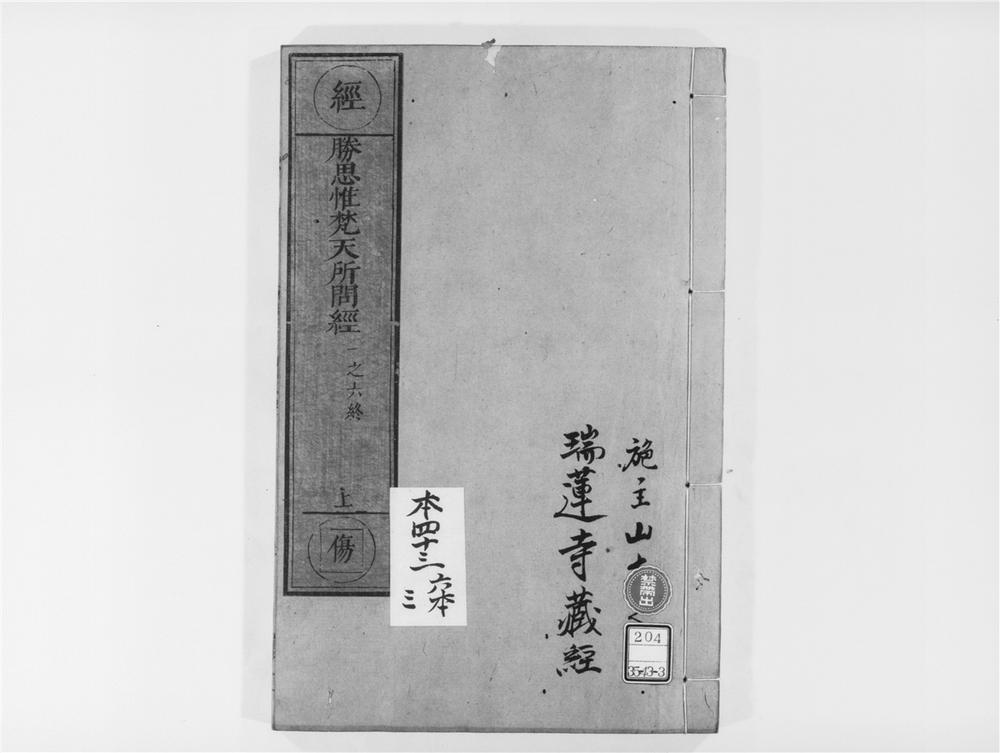 經
勝思惟梵天所問經 一之六終
上
傷
本四十三
六本
三
施主山
瑞蓮寺藏經
禁帶出
204
35-43-3